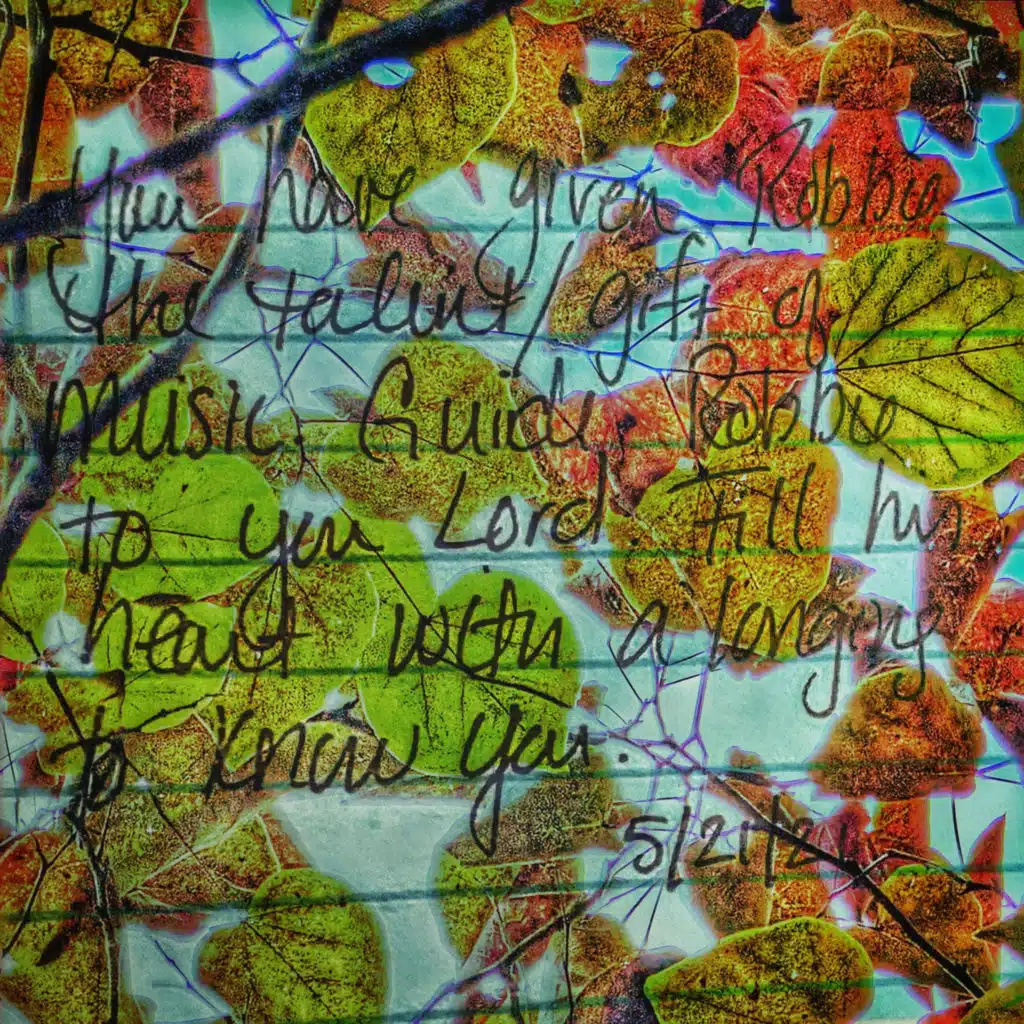 You have given Robbie
the talent/gift of
music. Guide Robbie
to you Lord. Fill his
heart with a longing
to know you.
5/21/21